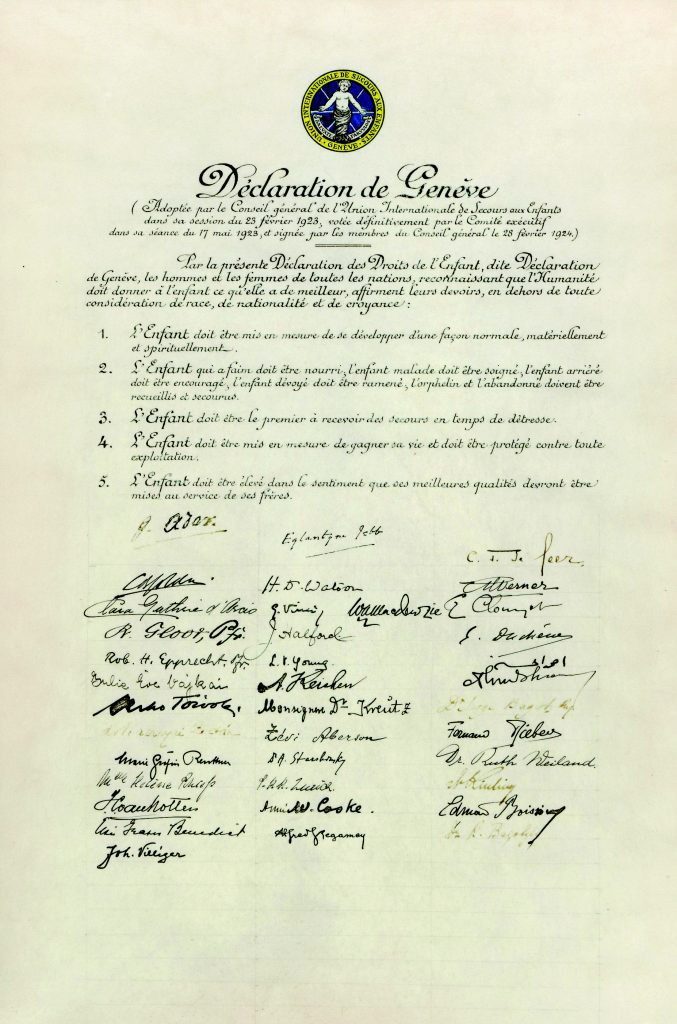 UNION INTERNATIONALE DE SECOURS AUX ENFANTS
GENÈVE
Déclaration de Genève
( Adoptée par le Conseil général de l'Union Internationale de Secours aux Enfants
dans sa session du 23 février 1923, votée définitivement par le Comité exécutif
dans sa séance du 17 mai 1923, et signée par les membres du Conseil général le 28 février 1924.)
Par la présente Déclaration des Droits de l'Enfant, dite Déclaration
de Genève, les hommes et les femmes de toutes les nations, reconnaissant que l'Humanité
doit donner à l'enfant ce qu'elle a de meilleur, affirment leurs devoirs, en dehors de toute
considération de race, de nationalité et de croyance :
1. L'Enfant doit être mis en mesure de se développer d'une façon normale, matériellement
et spirituellement.
2. L'Enfant qui a faim doit être nourri, l'enfant malade doit être soigné, l'enfant arriéré
doit être encouragé, l'enfant dévoyé doit être ramené, l'orphelin et l'abandonné doivent être
recueillis et secourus.
3. L'Enfant doit être le premier à recevoir des secours en temps de détresse.
4. L'Enfant doit être mis en mesure de gagner sa vie et doit être protégé contre toute
exploitation.
5. L'Enfant doit être élevé dans le sentiment que ses meilleures qualités devront être
mises au service de ses frères.
G. Ador.
Eglantyne Jebb
H. D. Watson
Werner
E Clouzot
J Halford
Rob. H. Epprecht
L. V. Young.
Julie Eve Vajkai
Monsignore Dr. Kreutz
Zevi Aberson
Dr. Ruth Weiland
Mme Hélène
Cooke.
Benedict
Joh. Villiger